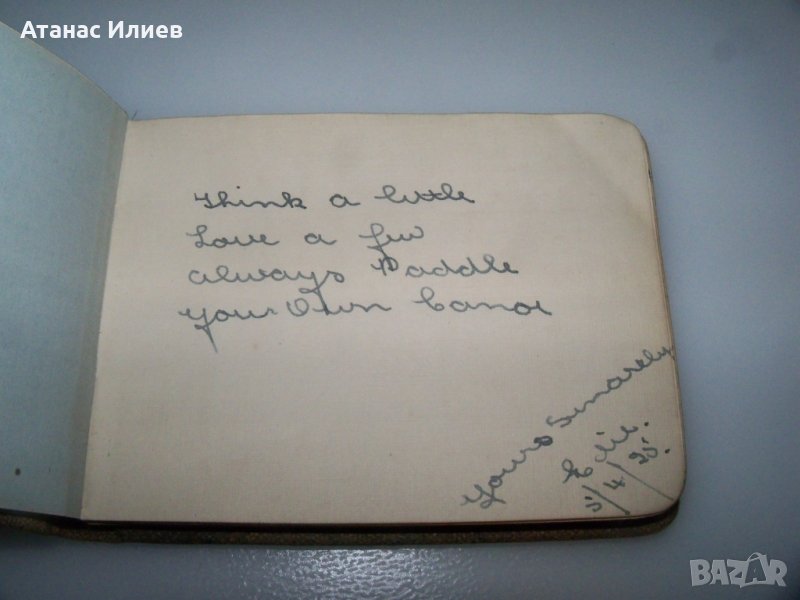 Атанас Илиев
Think a little
Love a few
always Paddle
Your Own Canoe
Yours Sincerely
Edie.
5/4/25.
BAZAR